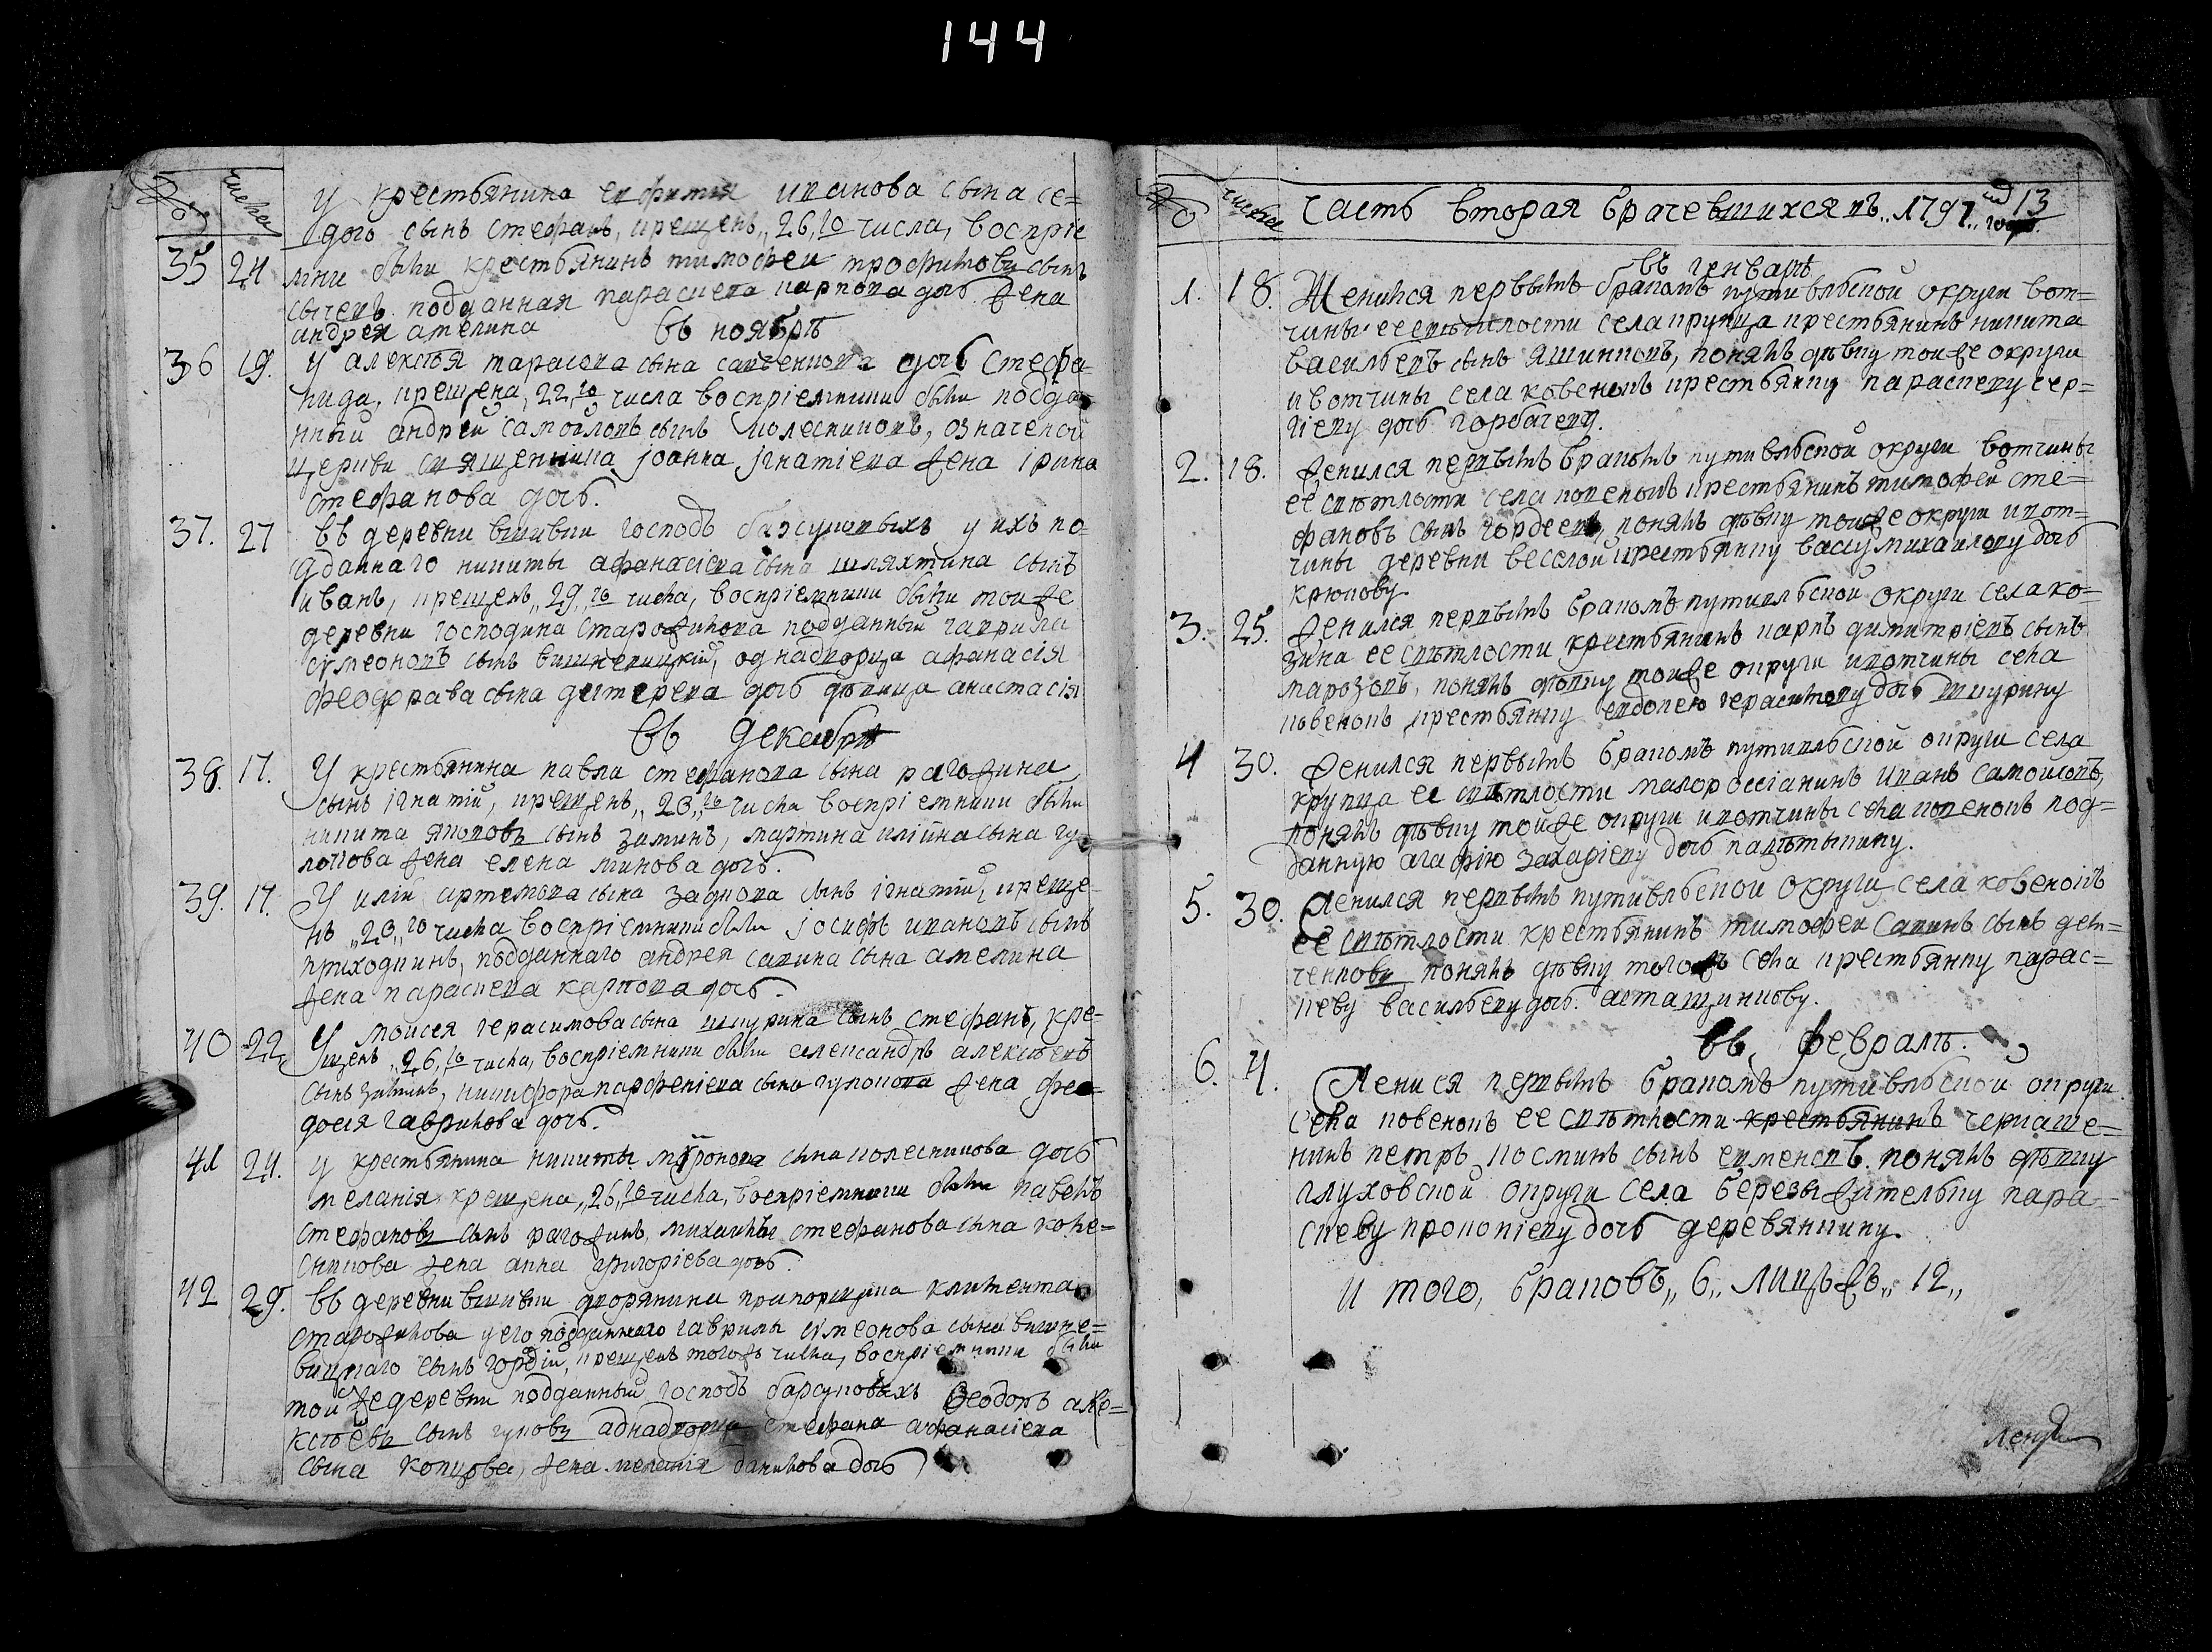 144
числа
У крестьянина евфимия иванова сына се=
дого сынъ стефанъ, крещенъ, 26, го числа, воспріе
35 24 мни были крестьянинъ тимофеи трофимовъ сынъ
сычевъ подданная параскева карпова дочь жена
андрея амелина въ ноябрѣ
36 19. У алексѣя тарасова сына савченкова дочь стефа=
нида, крещена, 22, го числа воспріемники были подда=
нный андрей самоиловъ сынъ колесниковъ, означеной
церкви священника іоанна ігнатіева жена ірина
стефанова дочь.
37. 27 въ деревни вшивки господъ барсуковыхъ у ихъ по=
дданнаго никиты афанасіева сына шляхтина сынъ
иванъ, крещенъ, 29, го числа, воспріемники были тои же
деревни господина старожилова подданный гаврила
сумеоновъ сынъ вишневицкій, однадворца афанасія
феодорава сына дехтерева дочь дѣвица анастасія
въ декабрѣ
38. 17. У крестьянина павла стефанова сына рагозина
сынъ ігнатій, крещенъ, 20, го числа воспріемники были
никита яковъ сынъ зиминъ, мартина иліина сына гу
лопова жена елена минова дочь.
39. 19. У иліи артемова сына заднова сынъ ігнатій, креще=
нъ „20„ го числа воспріемники были іосифъ ивановъ сынъ
приходкинъ, подданнаго андрея савина сына амелина
жена параскева карпова дочь.
40 22 У моисея герасимова сына шпурина сынъ стефанъ, кре=
щенъ „26, го числа, воспріемники были александръ алексѣевъ
сынъ зиминъ, никифора парфеніева сына гулопова жена фео=
досія гаврилова дочь.
41 24. у крестьянина никиты муронова сына колесникова дочь
меланія крещена, „26, го числа, воспріемники были павелъ
стефановъ сынъ рагозинъ, михаилы стефанова сына коле=
сникова жена анна григоріева дочь.
42 29. въ деревни вшивки дворянина прапорщика климента
старожилова у его подданнаго гаврилы сумеонова сына вишне=
вицкаго сынъ гордій, крещенъ тогожъ числа, воспріемники были
тои же деревни подданный господъ барсуковыхъ Феодоръ але=
ксѣевъ сынъ гуковъ аднадворца стефана афанасіева
сына копцова, жена меланія данилова дочь
числа Часть вторая брачевшихся въ „1797„ годѣ. 13
въ генварѣ
1. 18. Женился первымъ бракомъ путивльской округи вот=
чины ее свѣтлости села крупца крестьянинъ никита
васильевъ сынъ яшинковъ, понялъ дѣвку тои же округи
и вотчины села ковенокъ крестьянку параскеву сер=
гіеву дочь горбачеву.
2. 18. Женился первымъ бракомъ путивльской округи вотчины
ее свѣтлости села ковенокъ крестьянинъ тимофей сте=
фановъ сынъ гордеевъ, понялъ дѣвку тоиже округи и вот=
чины деревни веселой крестьянку вассу михаилову дочь
крюкову.
3. 25. Женился первымъ бракомъ путивльской округи села ко=
зина ее свѣтлости крестьянинъ карпъ димитріевъ сынъ
марозовъ, понялъ дѣвку тоиже округи и вотчины села
ковенокъ крестьянку евдокею герасимову дочь шпурину
4 30. Женился первымъ бракомъ путивльской округи села
крупца ее свѣтлости малороссіанинъ иванъ самоиловъ,
понялъ дѣвку тойже округи и вотчины села ковенокъ под=
данную агафію захаріеву дочь
5. 30. Женился первымъ путивльской округи села ковенокъ
ее свѣтлости крестьянинъ тимофеи савинъ сынъ дем=
ченковъ понялъ дѣвку тогожъ села крестьянку парас=
кеву васильеву дочь. асташинкову.
въ февралѣ.
6. 4. Женися первымъ бракомъ путивльской округи
села ковенокъ ее свѣтлости крестьянинъ черкаше=
нинъ петръ косминъ сынъ екменевъ понялъ дѣвку
глуховской округи села березы жительку пара=
скеву прокопіеву дочь деревянкину.
И того, браковъ „6„ лицъ жъ „12„